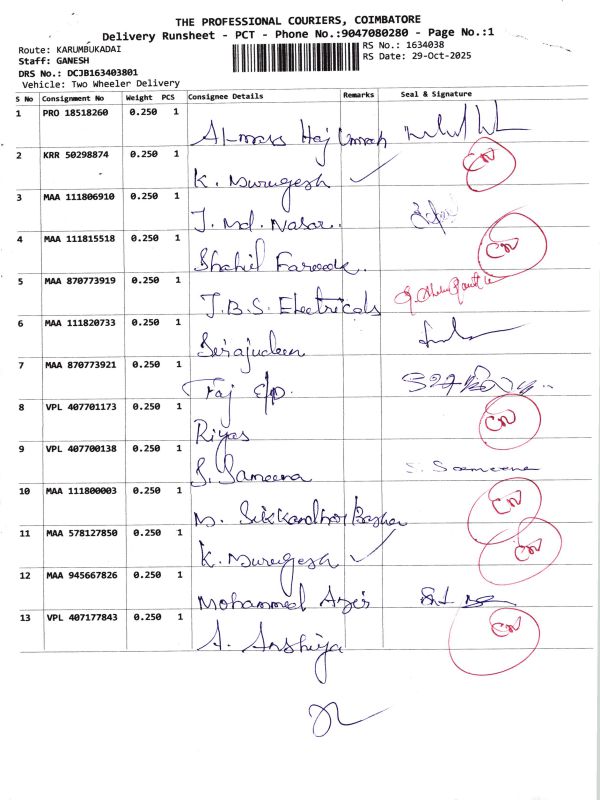 THE PROFESSIONAL COURIERS, COIMBATORE
Delivery Runsheet - PCT - Phone No.:9047080280 - Page No.:1
Route: KARUMBUKADAI
RS No.: 1634038
Staff: GANESH
RS Date: 29-Oct-2025
DRS No.: DCJB163403801
Vehicle: Two Wheeler Delivery
S No Consignment No Weight PCS Consignee Details Remarks Seal & Signature
1 PRO 18518260 0.250 1 Al-mass Haj Umrah
2 KRR 50298874 0.250 1 K. Murugesh
3 MAA 111806910 0.250 1 J. Md. Nasar.
4 MAA 111815518 0.250 1 Shahil Farook.
5 MAA 870773919 0.250 1 J.B.S. Electricals
6 MAA 111820733 0.250 1 Serajudeen
7 MAA 870773921 0.250 1 Taj
8 VPL 407701173 0.250 1 Riyas
9 VPL 407700138 0.250 1 S. Sameera S. Sameena
10 MAA 111800003 0.250 1 M. Sikkandhar Basha
11 MAA 578127850 0.250 1 K. Murugesh
12 MAA 945667826 0.250 1 Mohammed Azis
13 VPL 407177843 0.250 1 A. Anshiya